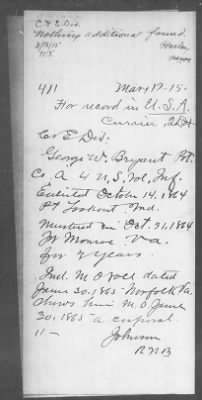 C & E Div.
Nothing additional found.
3/18/15
411 Mar 17-15.
For record in U.S.A.
Currier
C & E Div:
George W. Bryant Pvt.
Co. A 4 U.S. Vol. Inf.
Enlisted October 14, 1864
Pt Lookout Md.
Mustered in Oct. 31, 1864
Ft Monroe Va.
for 2 years.
Ind. M O roll dated
June 30, 1865 - Norfolk Va.
shows him M.O. June
30, 1865 - a corporal.
11 - Johnson
R M B